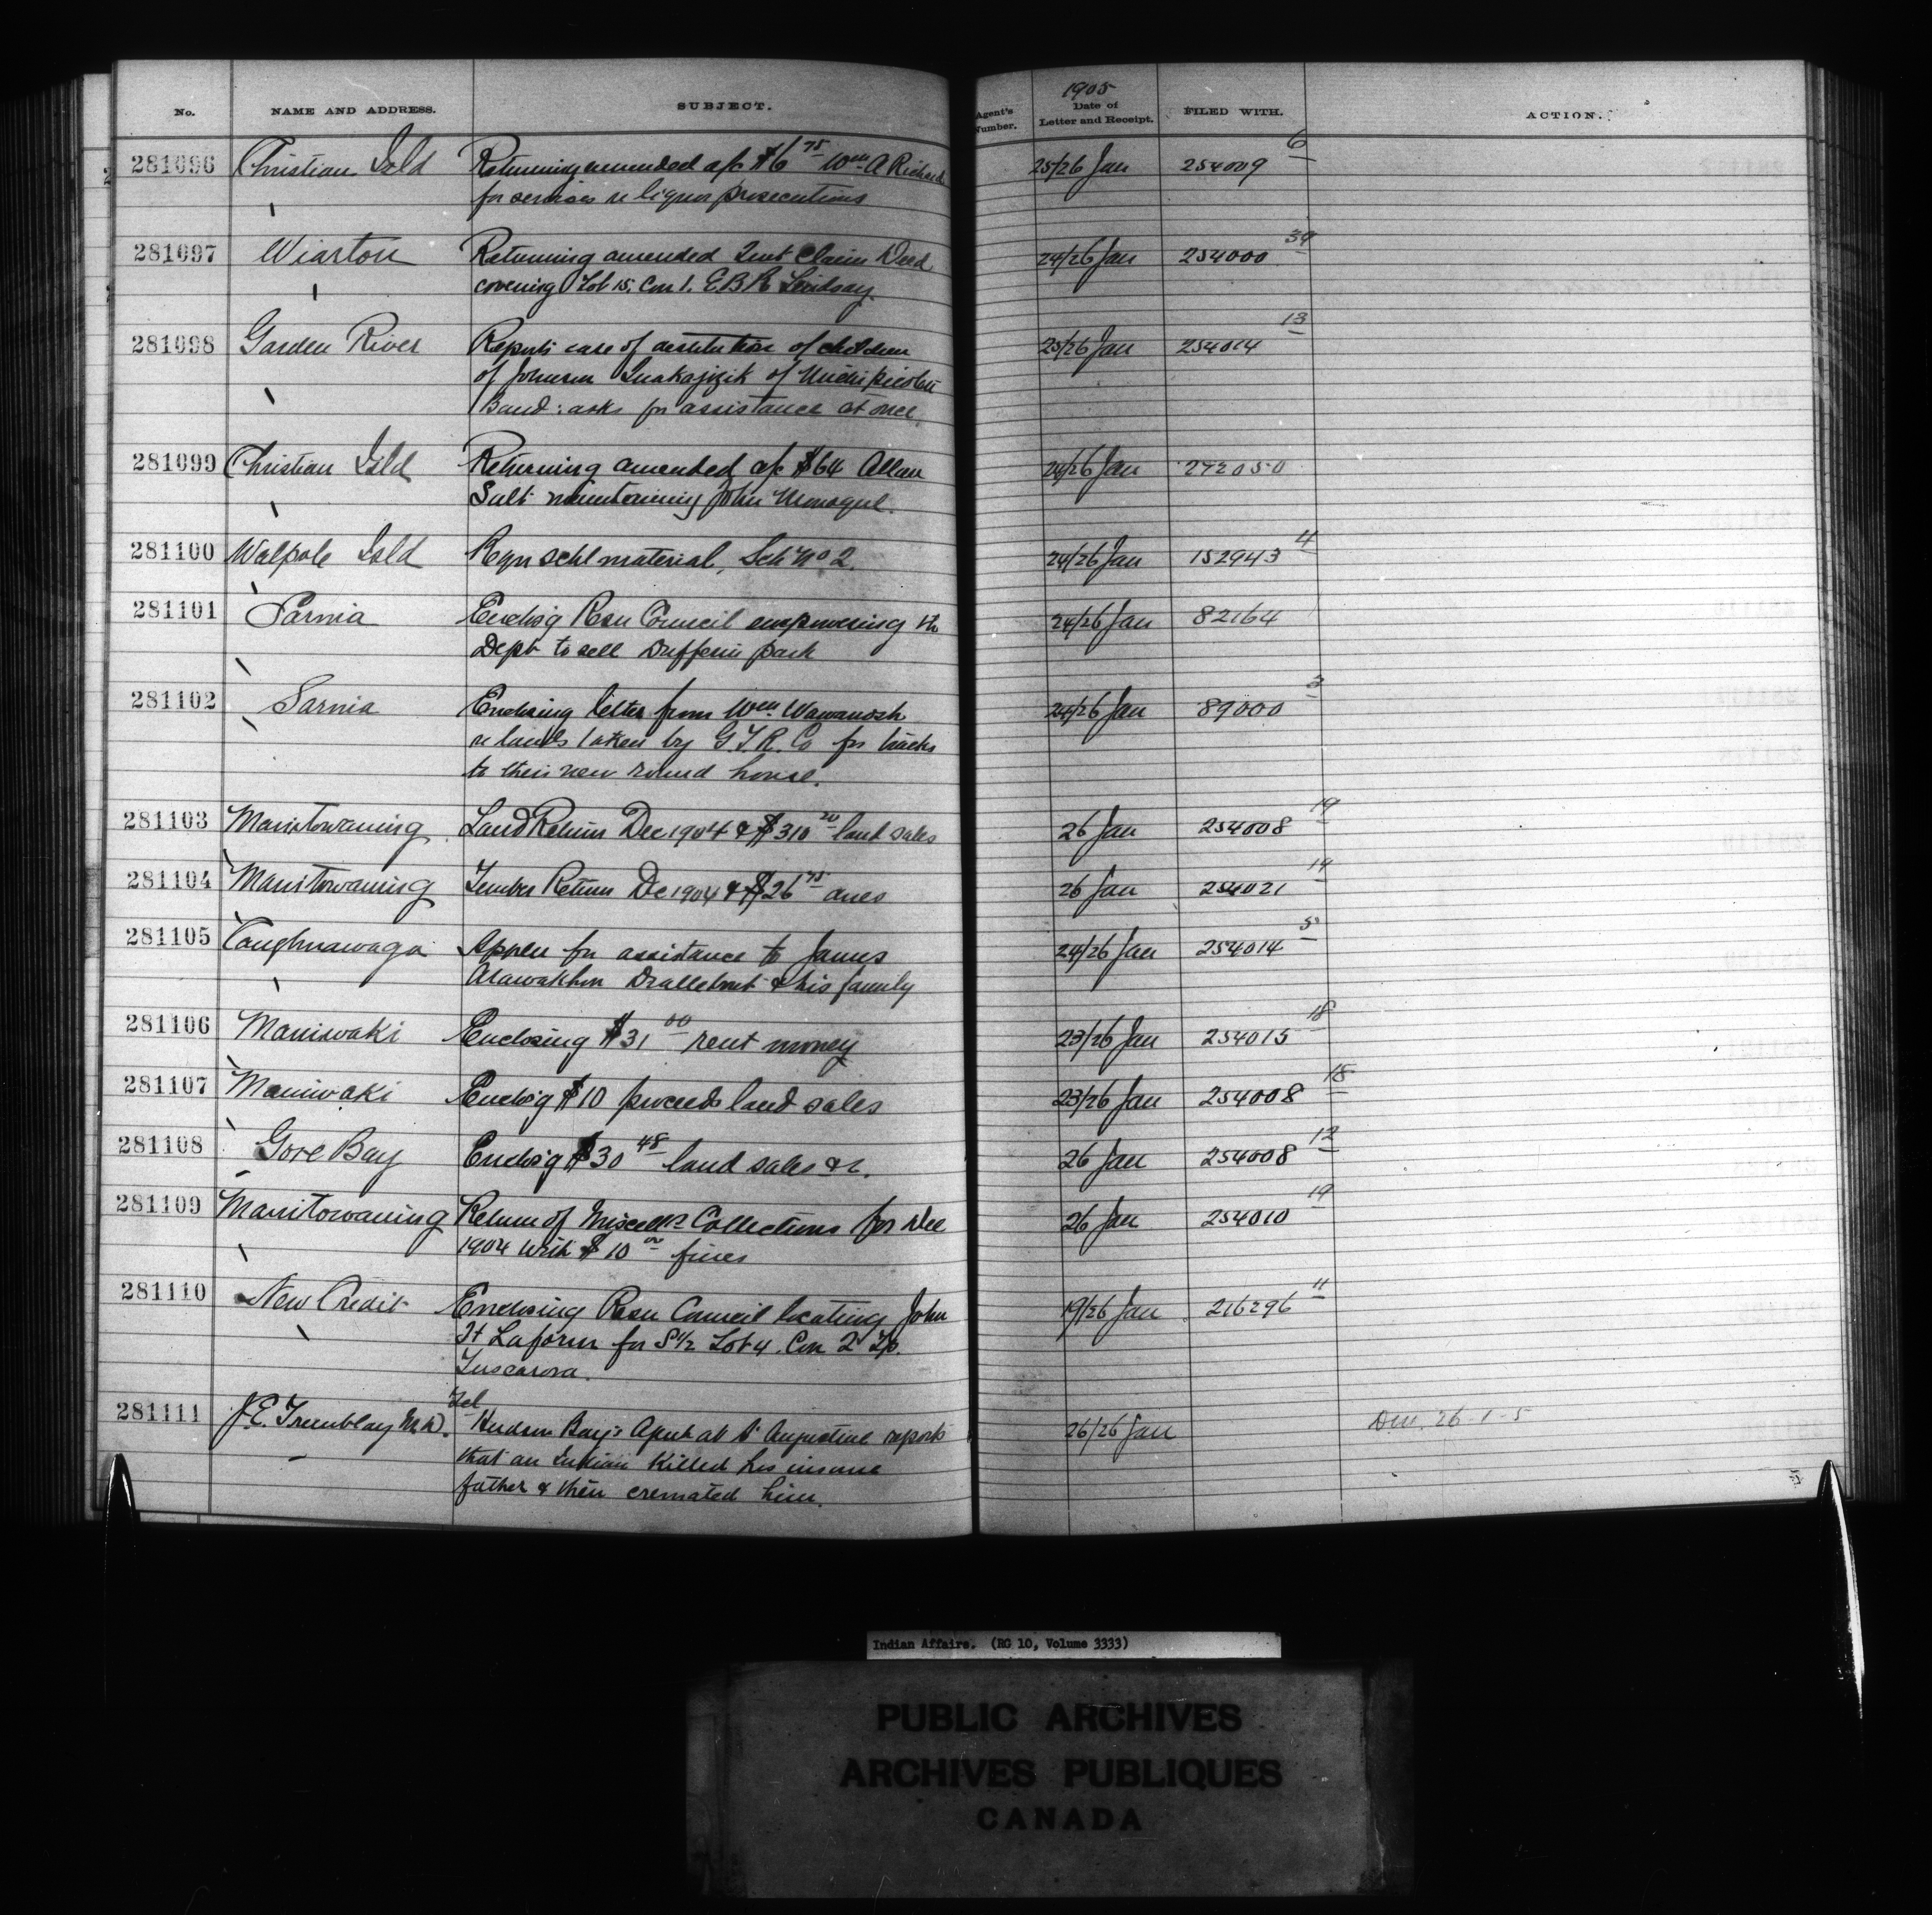 No. NAME AND ADDRESS. SUBJECT. Agent's Number. 1905 Date of Letter and Receipt. FILED WITH. ACTION.
281096 Christian Isld Returning amended a/c $6 75 Wm A Richards 25/26 Jan 254009 6
for services re liquor prosecutions
281097 Wiarton Returning amended Quit Claim Deed 24/26 Jan 254000 39
covering Lot 15, Con 1. E.B.R. Lindsay.
281098 Garden River Reports case of destitution of children 25/26 Jan 254014 13
of Johnson of Michipicoten
Band: asks for assistance at once.
281099 Christian Isld Returning amended a/c $64 Allan 24/26 Jan 272050
Salt maintaining John Monague.
281100 Walpole Isld Reqn schl material, Sch No 2. 24/26 Jan 152943 4
281101 Sarnia Enclos'g Resn Council empowering the 24/26 Jan 82164
Dept to sell Dufferin park
281102 Sarnia Enclosing letter from Wm Wawanosh 24/26 Jan 89000 3
re lands taken by G.T.R. Co for tracks
to their new round house.
281103 Manitowaning Land Return Dec 1904 & $310 20 land sales 26 Jan 254008 19
281104 Manitowaning Timber Return De 1904 & $26 75 dues 26 Jan 254021 14
281105 Caughnawaga Appln for assistance to James 24/26 Jan 254014 5
& his family
281106 Maniwaki Enclosing $31 00 rent money 23/26 Jan 254015 18
281107 Maniwaki Enclos'g $10 proceeds land sales 23/26 Jan 254008 18
281108 Gore Bay Enclos'g $30 48 land sales &c. 26 Jan 254008 12
281109 Manitowaning Return of Miscells Collections for Dec 26 Jan 254010 19
1904 with $10 00 fines
281110 New Credit Enclosing Resn Council locating John 19/26 Jan 216296 11
Laform for S 1/2 Lot 4. Con 2 Tp.
Tuscarora.
Tel
281111 J.E. Tremblay M.D. Hudson Bay's Agent at St Augustine reports 26/26 Jan 26-1-5
that an Indian killed his insane
father & then cremated him.
Indian Affairs. (RG 10, Volume 3333)
PUBLIC ARCHIVES
ARCHIVES PUBLIQUES
CANADA